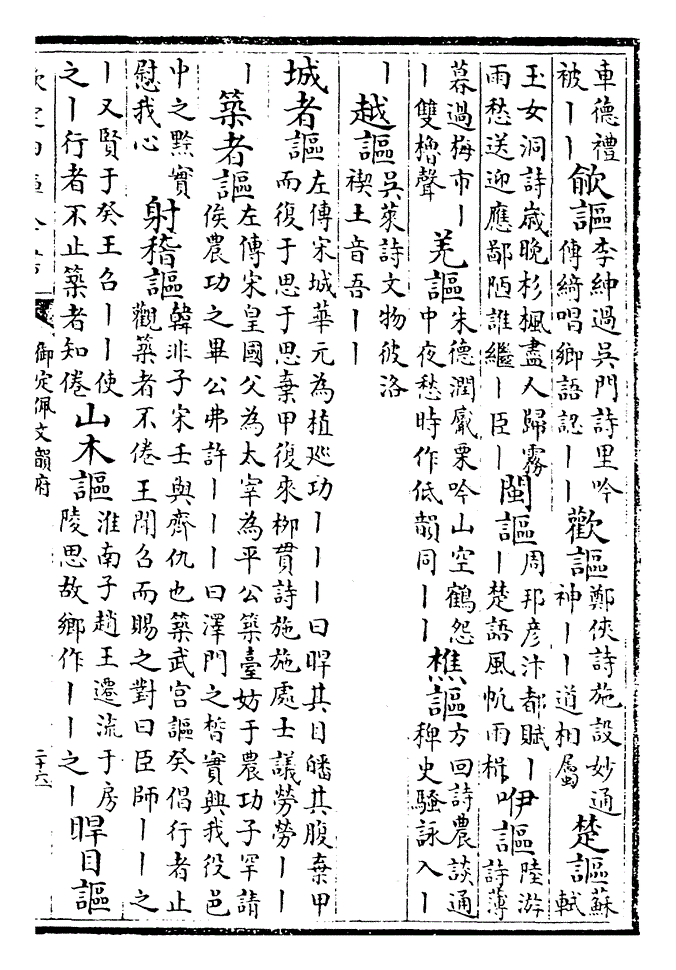 車德禮
被丨丨
歈謳
李紳過吳門詩里吟
傳綺唱鄉語認丨丨
歡謳
鄭俠詩施設妙通
神丨丨道相屬
楚謳
蘇
軾
玉女洞詩歳晚杉楓盡人歸霧
雨愁送迎應鄙陋誰繼丨臣丨
閩謳
周邦彦汴都賦丨伊
丨楚語風帆雨楫
咿謳
陸游
詩薄
暮過梅市丨
丨雙櫓聲
羌謳
朱德潤觱栗吟山空鶴怨
中夜愁時作低韻同丨丨
樵謳
方回詩農談通
稗史騷詠入丨
丨
越謳
吳萊詩文物彼洛
禊土音吾丨丨
城者謳
左傳宋城華元為植廵功丨丨丨曰睅其目皤其腹棄甲
而復于思于思棄甲復來栁貫詩施施處士議勞勞丨丨
丨
築者謳
左傳宋皇國父為太宰為平公築臺妨于農功子罕請
俟農功之畢公弗許丨丨丨曰澤門之晳實興我役邑
中之黔實
慰我心
射稽謳
韓非子宋王與齊仇也築武宫謳癸倡行者止
觀築者不倦王聞召而賜之對曰臣師丨丨之
丨又賢于癸王召丨丨使
之丨行者不止築者知倦
山木謳
淮南子趙王遷流于房
陵思故鄉作丨丨之丨
睅目謳
御定佩文韻府
二十六